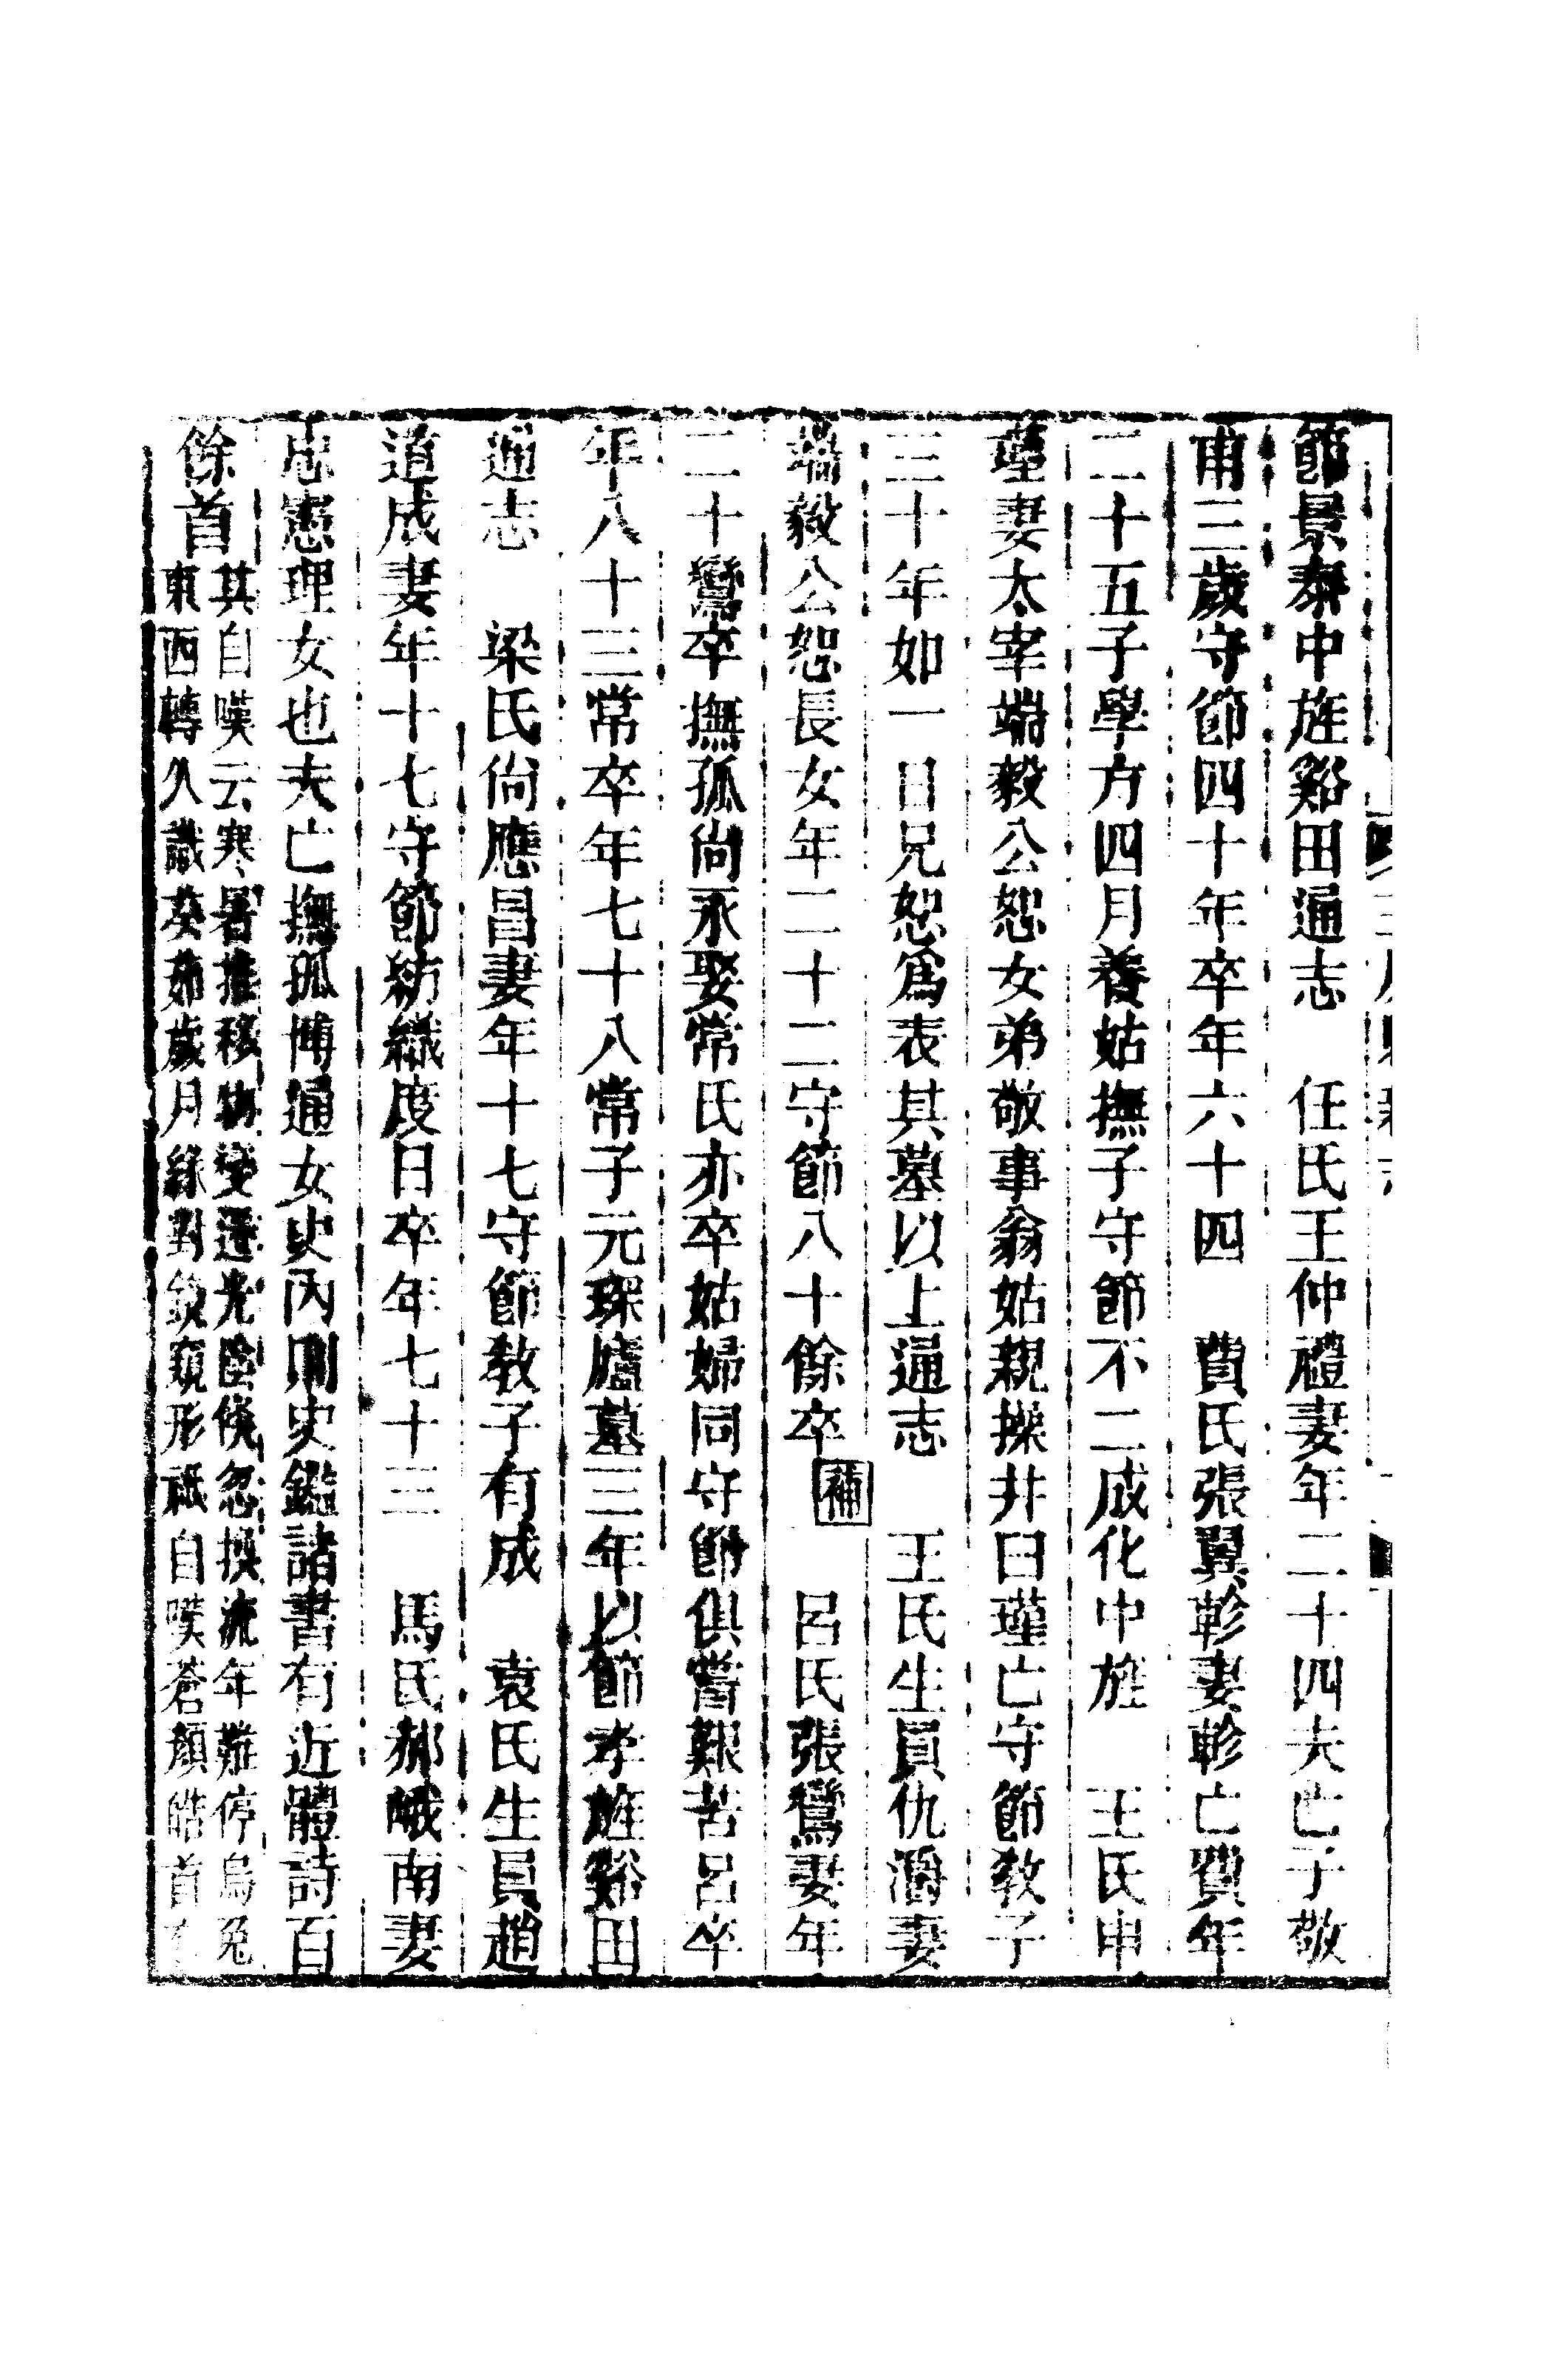 節景泰中旌谿田通志　任氏王仲禮妻年二十四夫亡子敬
甫三歲守節四十年卒年六十四　費氏張翼軫妻軫亡費年
二十五子學方四月養姑撫子守節不二成化中旌　王氏申
瑾妻太宰端毅公恕女弟敬事翁姑親操井臼瑾亡守節教子
三十年如一日兄恕爲表其墓以上通志　王氏生員仇濬妻
端毅公恕長女年二十二守節八十餘卒補　呂氏張鸞妻年
二十鸞卒撫孤尙永娶常氏亦卒姑婦同守節俱嘗艱苦呂卒
年八十三常卒年七十八常子元琛廬墓三年以節孝旌谿田
通志　梁氏尙應昌妻年十七守節教子有成　袁氏生員趙
道成妻年十七守節紡織度日卒年七十三　馬氏郝峨南妻
忠憲理女也夫亡撫孤博通女史內則史鑑諸書有近體詩百
餘首
其自嘆云寒暑推移物變遷光陰倐忽損流年難停烏兔
東西轉久識葵茆歲月綠對鏡窺形祗自嘆蒼顏皓首